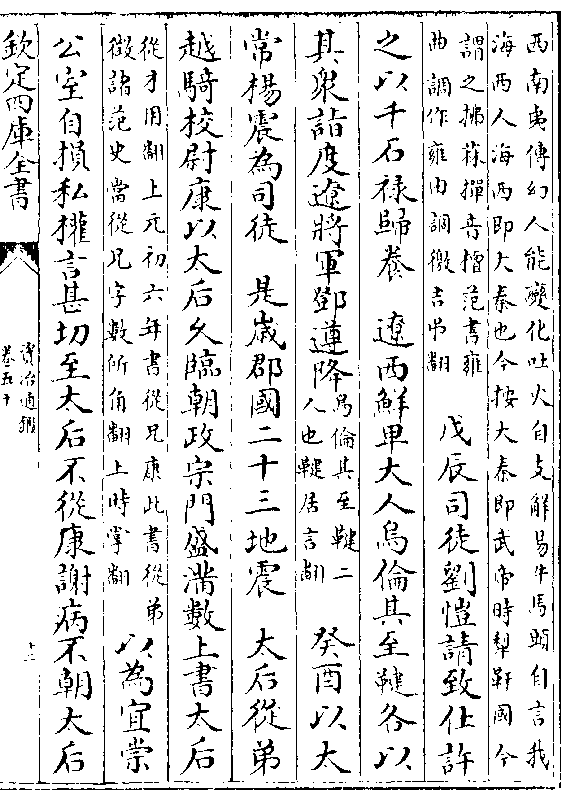 西南夷傳幻人能變化吐火自支解易牛馬頭自言我
海西人海西即大秦也今按大秦即武帝時犂靬國今
謂之拂菻撣音檀范書雍
曲調作雍由調徼吉弔翻
戊辰司徒劉愷請致仕許
之以千石祿歸養　遼西鮮卑大人烏倫其至鞬各以
其衆詣度遼將軍鄧遵降
烏倫其至鞬二
人也鞬居言翻
癸酉以太
常楊震為司徒　是歲郡國二十三地震　太后從弟
越騎校尉康以太后久臨朝政宗門盛滿數上書太后
從才用翻上元初六年書從兄康此書從弟
微誥范史當從兄字數所角翻上時掌翻
以為宜崇
公室自損私權言甚切至太后不從康謝病不朝太后
欽定四庫全書
資治通鑑
卷五十
十三